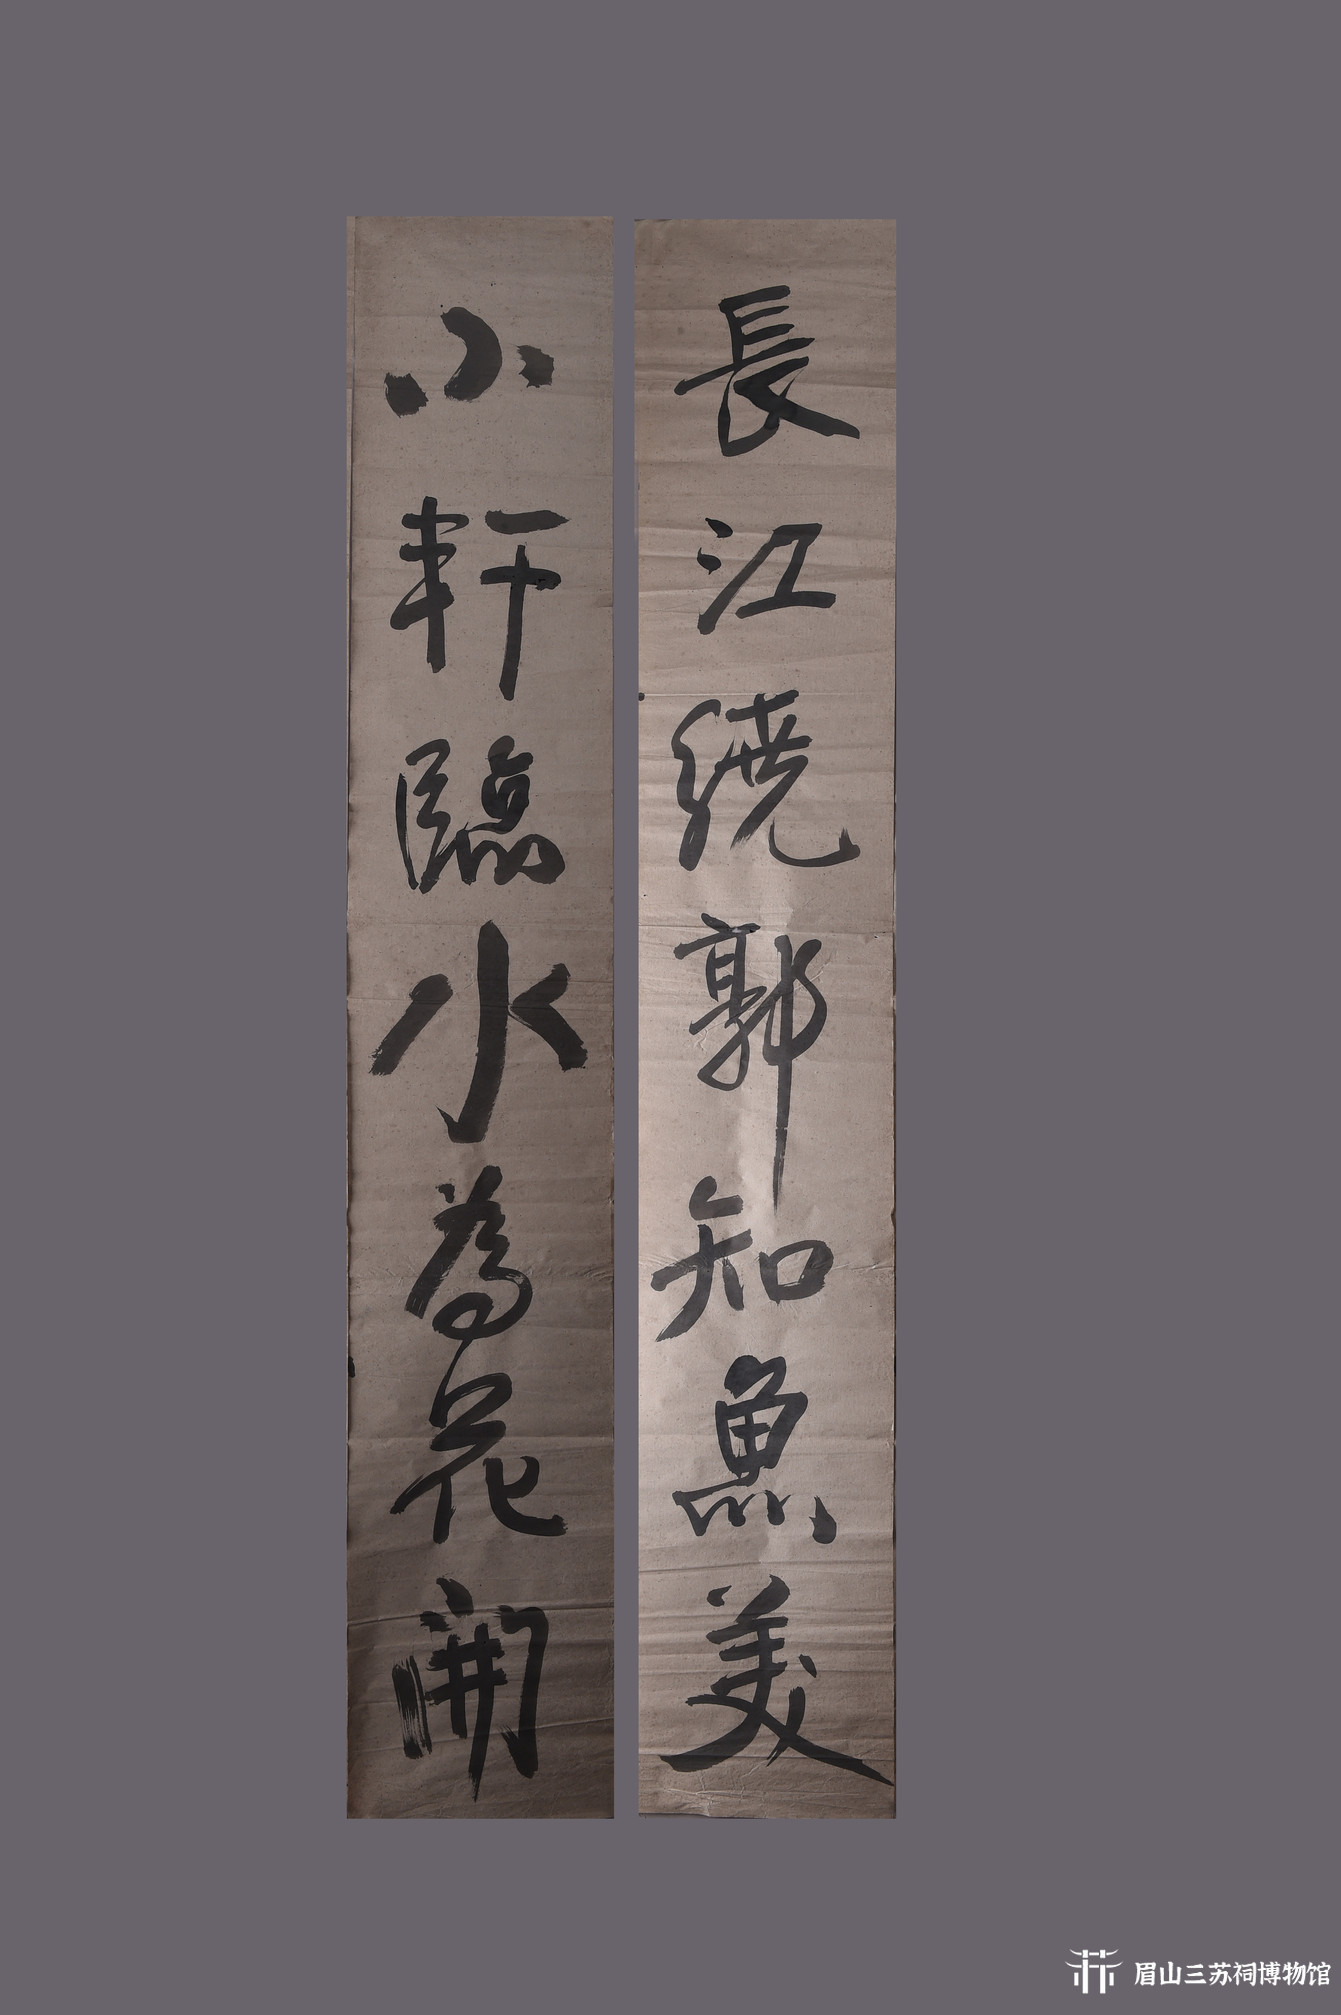 長江繞郭知魚美
小軒臨水為花開
眉山三苏祠博物馆